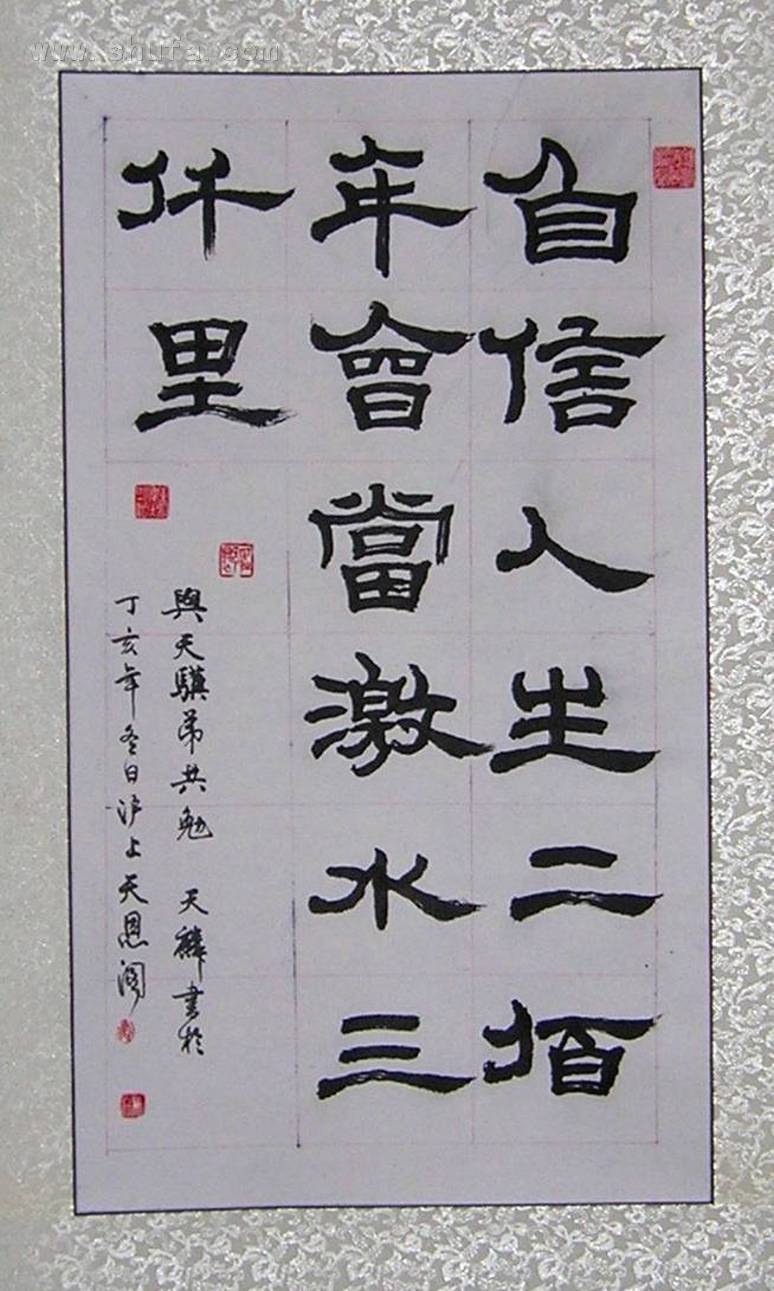 自信人生二佰
年會當激水三
仟里
與天驥弟共勉 天麟書於
丁亥年冬日沪上天恩阁
www.shufa.com